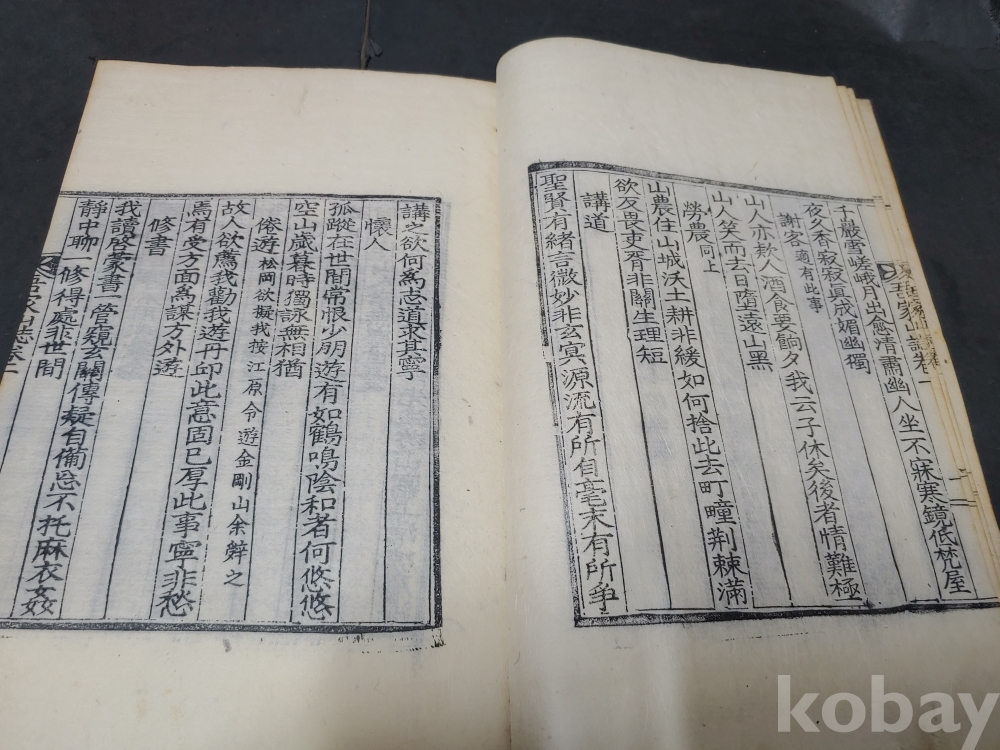 吾家山誌卷一
千巖雪嵯峨月出愈清肅幽人坐不寐寒鏡低梵屋
夜久香寂寂眞成媚幽獨
謝客 適有此事
山人亦欵人酒食要餉夕我云子休矣後者情難極
山人笑而去日蔭遠山黑
勞農 同上
山農住山城沃土耕非緩如何捨此去町疃荊棘滿
欲反畏吏胥非關生理短
講道
聖賢有緒言微妙非玄冥源流有所自毫末有所爭
講之欲何爲志道求其寧
懷人
孤蹤在世間常恨少朋遊有如鶴鳴陰和者何悠悠
空山歲暮時獨詠無相猶
倦遊 松岡欲擬我按江原令遊金剛山余辭之
故人欲薦我勸我遊丹邱此意固已厚此事寧非愁
焉有受方面爲謀方外遊
修書
我讀啓蒙書一管窺玄關傳疑自備忘不托麻衣姦
靜中聊一修得處非世間
吾家山誌卷一
kobay